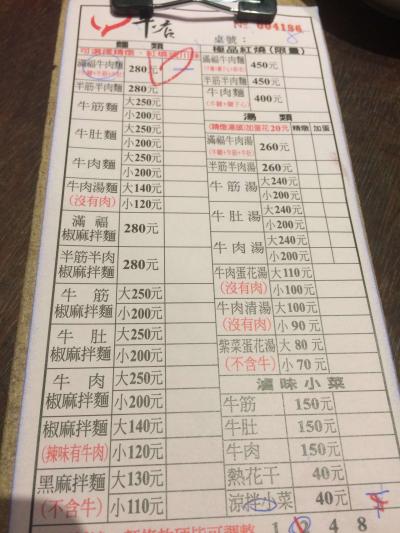 牛老
№ 004186
桌號：8
麵 類
極品紅燒(限量)
滿福牛肉麵 280元
半筋半肉麵 280元
牛筋麵 大250元
小200元
牛肚麵 大250元
小200元
牛肉麵 大250元
小200元
牛肉湯麵 大140元
(沒有肉) 小120元
滿福
椒麻拌麵 280元
半筋半肉
椒麻拌麵 280元
牛筋 大250元
椒麻拌麵 小200元
牛肚 大250元
椒麻拌麵 小200元
牛肉 大250元
椒麻拌麵 小200元
椒麻拌麵 大140元
(辣味有牛肉) 小120元
黑麻拌麵 大130元
(不含牛) 小110元
滿福牛肉麵 450元
半筋半肉麵 450元
牛肉麵 400元
湯 類
(精燉湯底)加蛋花20元 精燉 加蛋
滿福牛肉湯 260元
半筋半肉湯 260元
牛筋湯 大240元
小200元
牛肚湯 大240元
小200元
牛肉湯 大240元
小200元
牛肉蛋花湯 大110元
(沒有肉) 小100元
牛肉清湯 大100元
(沒有肉) 小 90元
紫菜蛋花湯 大 80元
(不含牛) 小 70元
滷味小菜
牛筋 150元
牛肚 150元
牛肉 150元
熱花干 40元
涼拌小菜 40元
1 2 4 8